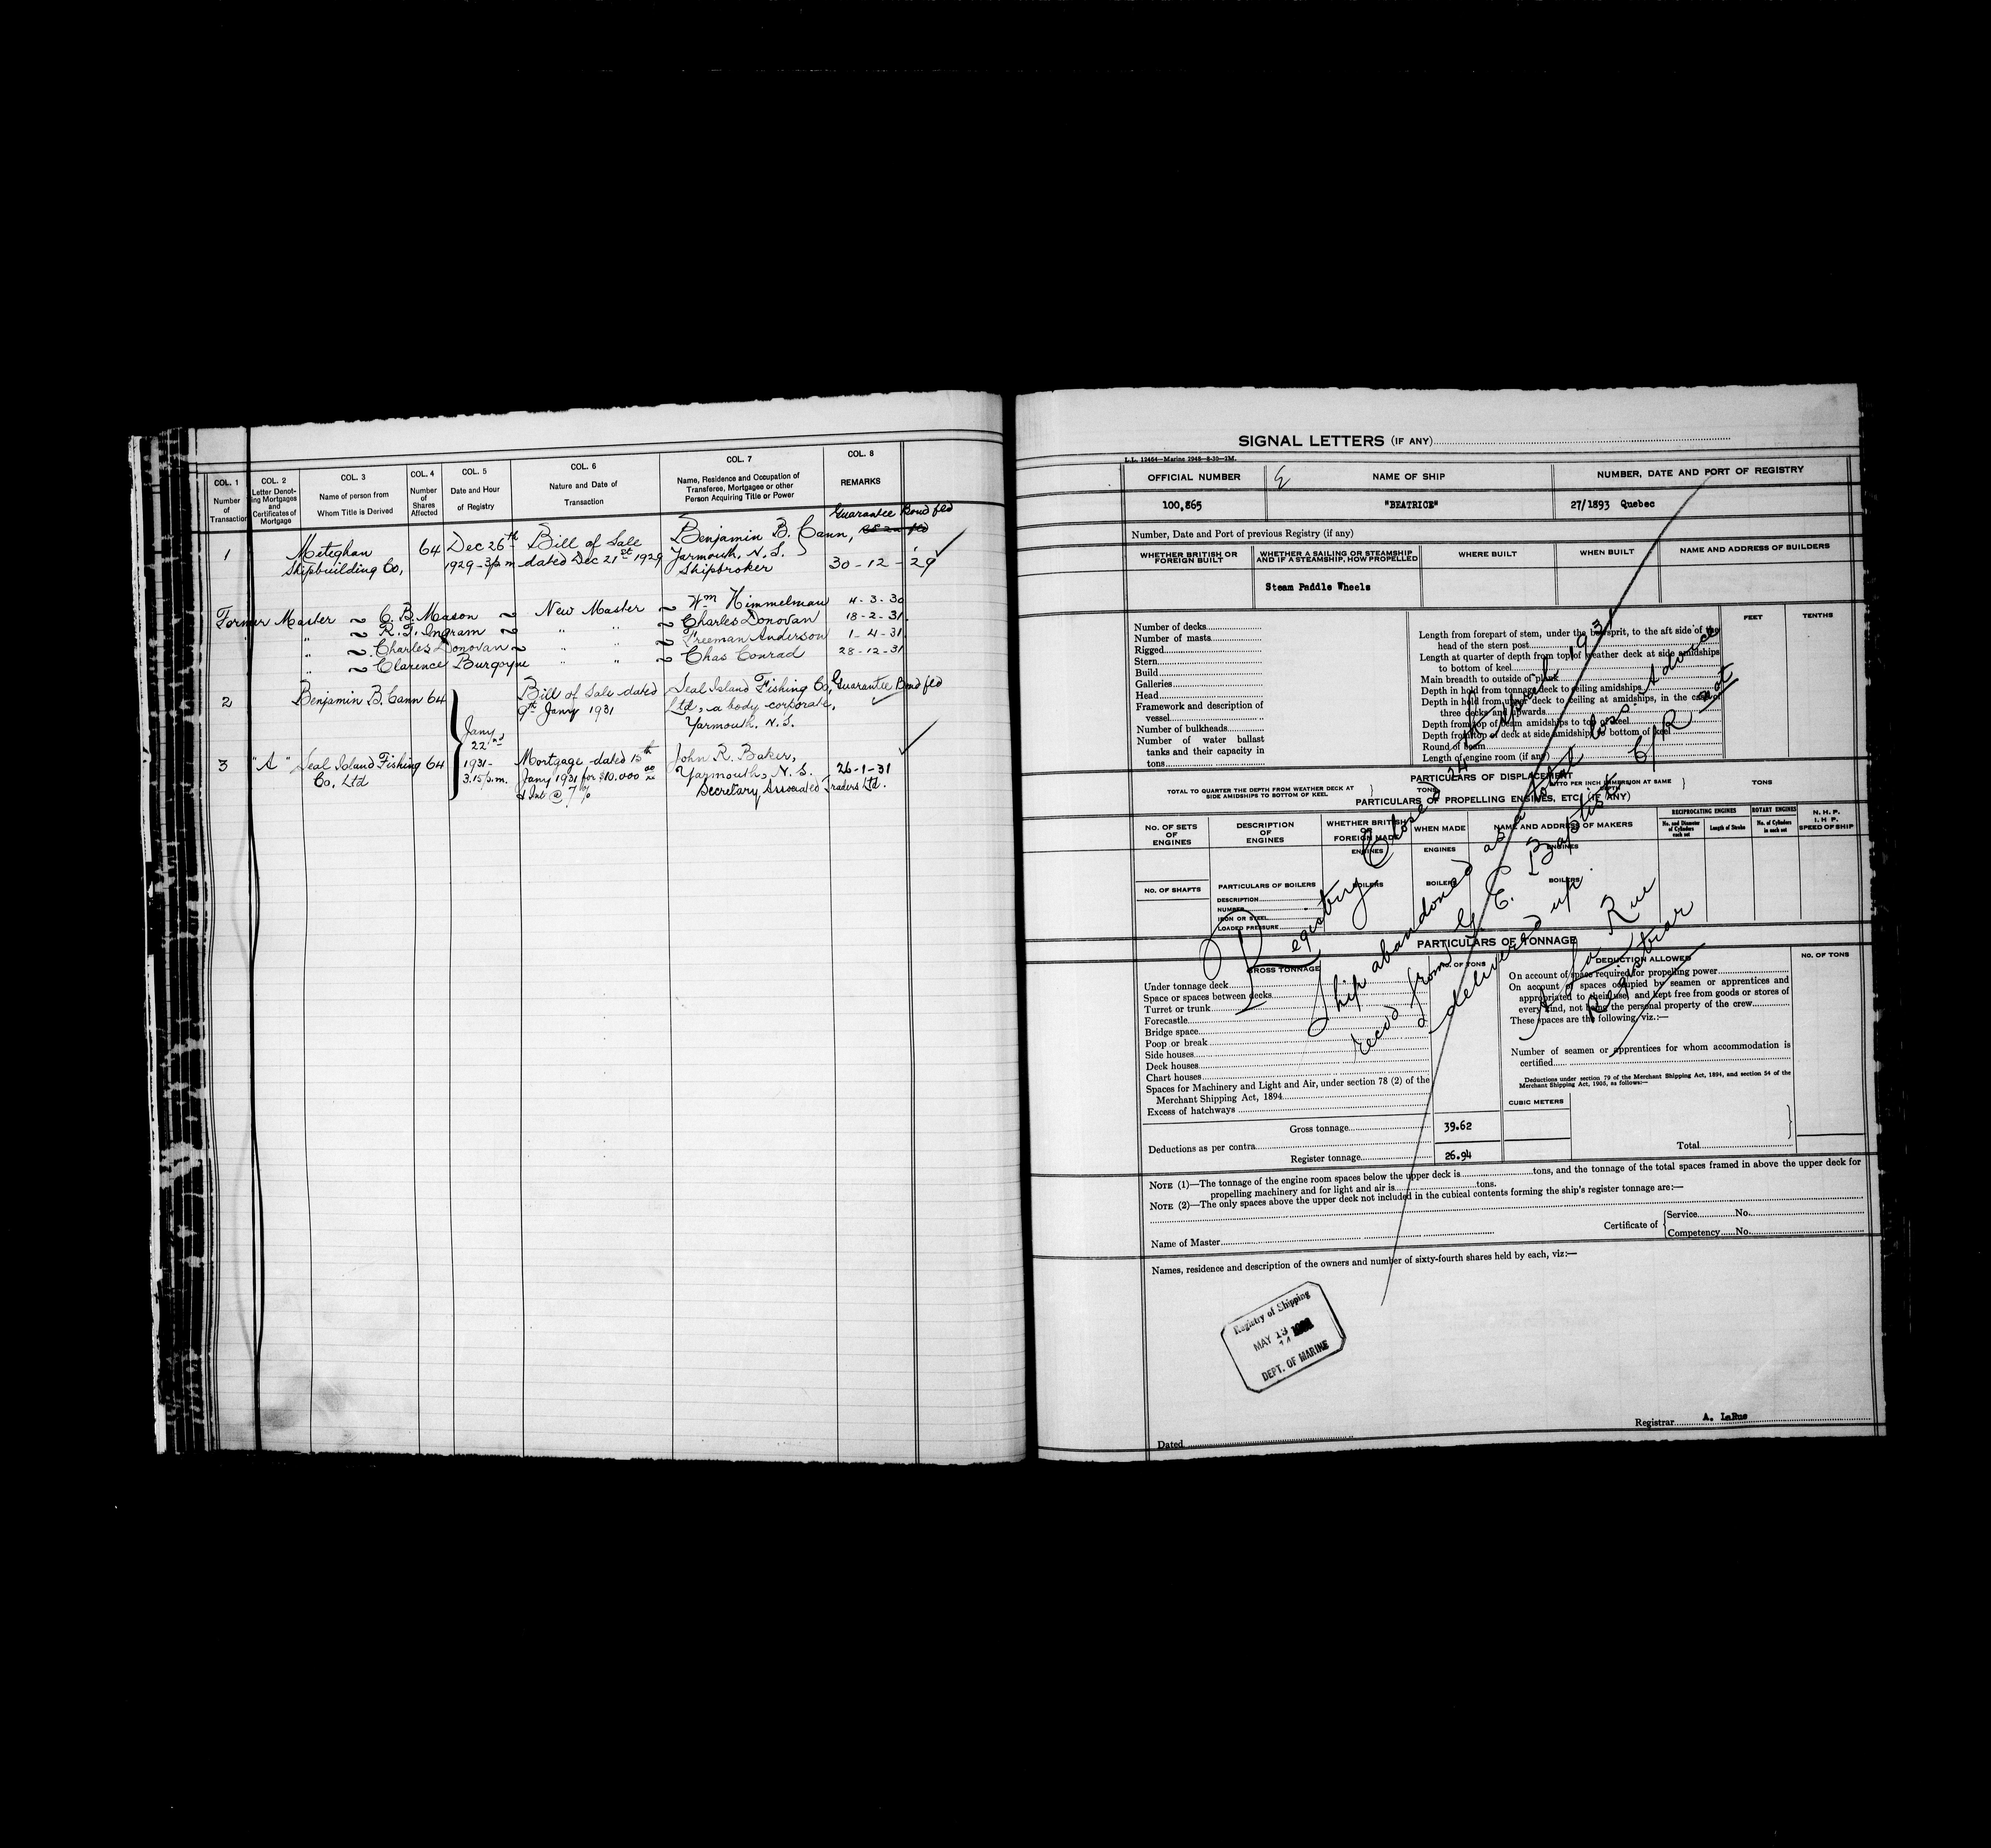 COL. 1 COL. 2 COL. 3 COL. 4 COL. 5 COL. 6 COL. 7 COL. 8
Number of Transaction
Letter Denoting Mortgages and Certificates of Mortgage
Name of person from Whom Title is Derived
Number of Shares Affected
Date and Hour of Registry
Nature and Date of Transaction
Name, Residence and Occupation of Transferee, Mortgagee or other Person Acquiring Title or Power
REMARKS
Guarantee Bond fld
1 Meteghan 64 Dec 26th Bill of Sale Benjamin B. Cann,
Shipbuilding Co, 1929-3 p m dated Dec 21st 1929 Yarmouth, N.S. 30-12-29
Shipbroker
Former Master ~ C. B. Mason ~ New Master ~ Wm Himmelman 4-3-30
" ~ R. T. Ingram ~ " " ~ Charles Donovan 18-2-31
" ~ Charles Donovan ~ " " ~ Freeman Anderson 1-4-31
" ~ Clarence Burgoyne " " ~ Chas Conrad 28-12-31
2 Benjamin B. Cann 64 Bill of Sale dated Seal Island Fishing Co, Guarantee Bond fld
9th Jany 1931 Ltd, a body corporate,
Yarmouth. N.S.
Jany 22nd
3 "A" Seal Island Fishing 64 1931- Mortgage dated 15th John R. Baker,
Co. Ltd 3.15 p.m. Jany 1931 for $10.000 00 Yarmouth, N.S. 26-1-31
& Int @ 7% Secretary, Associated Traders Ltd.
SIGNAL LETTERS (IF ANY)
L.L. 12464—Marine 2948—8-30—2M.
OFFICIAL NUMBER NAME OF SHIP NUMBER, DATE AND PORT OF REGISTRY
100,865 "BEATRICE" 27/1893 Quebec
Number, Date and Port of previous Registry (if any)
WHETHER BRITISH OR FOREIGN BUILT
WHETHER A SAILING OR STEAMSHIP AND IF A STEAMSHIP, HOW PROPELLED
WHERE BUILT
WHEN BUILT
NAME AND ADDRESS OF BUILDERS
Steam Paddle Wheels
Number of decks
Number of masts
Rigged
Stern
Build
Galleries
Head
Framework and description of vessel
Number of bulkheads
Number of water ballast tanks and their capacity in tons
FEET TENTHS
Length from forepart of stem, under the bowsprit, to the aft side of the head of the stern post
Length at quarter of depth from top of weather deck at side amidships to bottom of keel
Main breadth to outside of plank
Depth in hold from tonnage deck to ceiling amidships
Depth in hold from upper deck to ceiling at amidships, in the case of three decks and upwards
Depth from top of beam amidships to top of keel
Depth from top of deck at side amidships to bottom of keel
Round of beam
Length of engine room (if any)
PARTICULARS OF DISPLACEMENT
TOTAL TO QUARTER THE DEPTH FROM WEATHER DECK AT SIDE AMIDSHIPS TO BOTTOM OF KEEL } TONS
DITTO PER INCH IMMERSION AT SAME DEPTH } TONS
PARTICULARS OF PROPELLING ENGINES, ETC. (IF ANY)
NO. OF SETS OF ENGINES
DESCRIPTION OF ENGINES
WHETHER BRITISH OR FOREIGN MADE
WHEN MADE
NAME AND ADDRESS OF MAKERS
RECIPROCATING ENGINES
No. and Diameter of Cylinders each set
Length of Stroke
ROTARY ENGINES
No. of Cylinders in each set
N. H. P.
I. H. P.
SPEED OF SHIP
ENGINES ENGINES ENGINES
NO. OF SHAFTS PARTICULARS OF BOILERS BOILERS BOILERS BOILERS
DESCRIPTION
NUMBER
IRON OR STEEL
LOADED PRESSURE
PARTICULARS OF TONNAGE
GROSS TONNAGE NO. OF TONS DEDUCTION ALLOWED NO. OF TONS
Under tonnage deck
Space or spaces between decks
Turret or trunk
Forecastle
Bridge space
Poop or break
Side houses
Deck houses
Chart houses
Spaces for Machinery and Light and Air, under section 78 (2) of the Merchant Shipping Act, 1894
Excess of hatchways
Gross tonnage 39.62
Deductions as per contra
Register tonnage 26.94
On account of space required for propelling power
On account of spaces occupied by seamen or apprentices and appropriated to their use, and kept free from goods or stores of every kind, not being the personal property of the crew
These spaces are the following, viz.:—
Number of seamen or apprentices for whom accommodation is certified
Deductions under section 79 of the Merchant Shipping Act, 1894, and section 54 of the Merchant Shipping Act, 1906, as follows:—
CUBIC METERS
Total
NOTE (1)—The tonnage of the engine room spaces below the upper deck is tons, and the tonnage of the total spaces framed in above the upper deck for propelling machinery and for light and air is tons.
NOTE (2)—The only spaces above the upper deck not included in the cubical contents forming the ship's register tonnage are:—
Name of Master
Certificate of { Service No.
Competency No.
Names, residence and description of the owners and number of sixty-fourth shares held by each, viz:—
Registry Closed 24 April 193
Ship abandoned as a total loss. Advice
recd from G. E. Baptist C/R not
delivered up.
A La Rue
Registrar
Registry of Shipping
MAY 13
14
DEPT. OF MARINE
Registrar A. LaRue
Dated